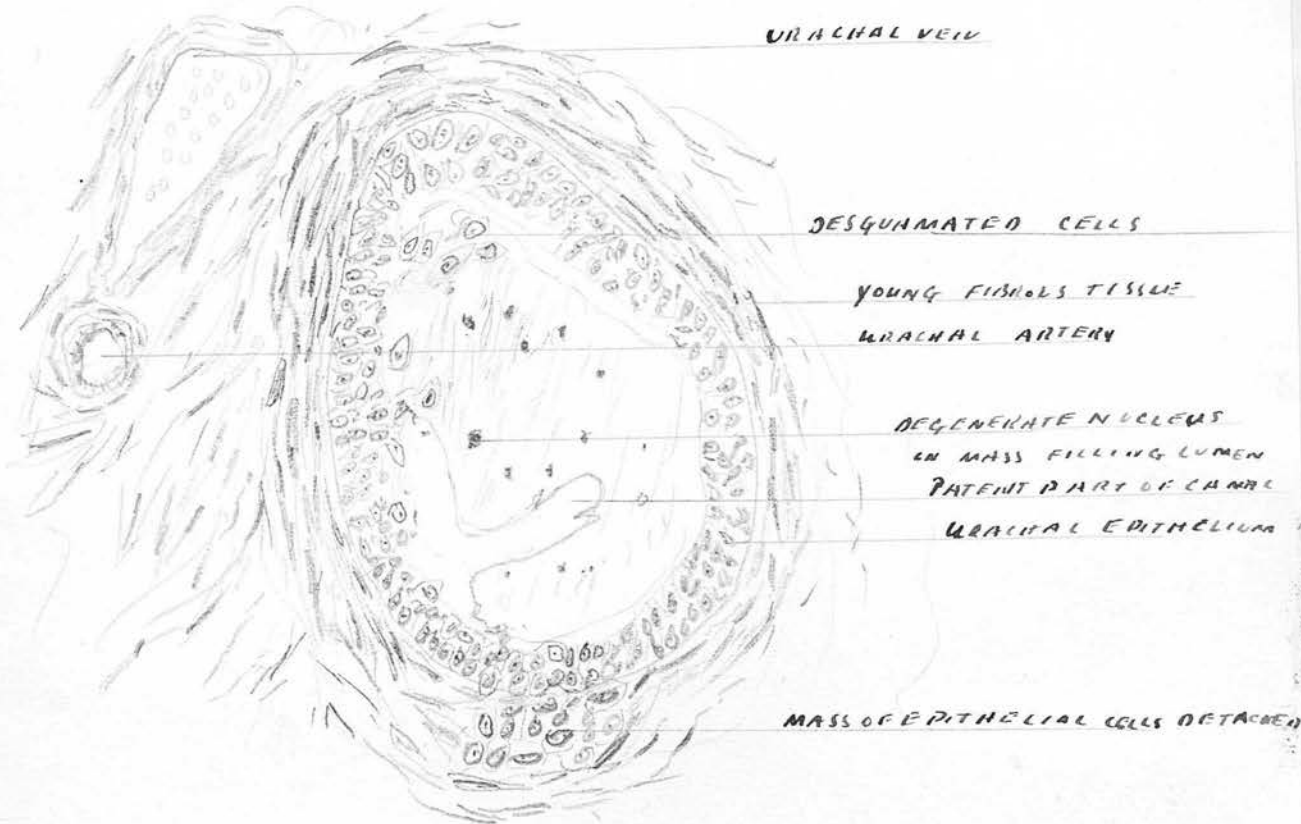 URACHAL VEIN
DESQUAMATED CELLS
YOUNG FIBROUS TISSUE
URACHAL ARTERY
DEGENERATE NUCLEUS
IN MASS FILLING LUMEN
PATENT PART OF CANAL
URACHAL EPITHELIUM
MASS OF EPITHELIAL CELLS DETACHED